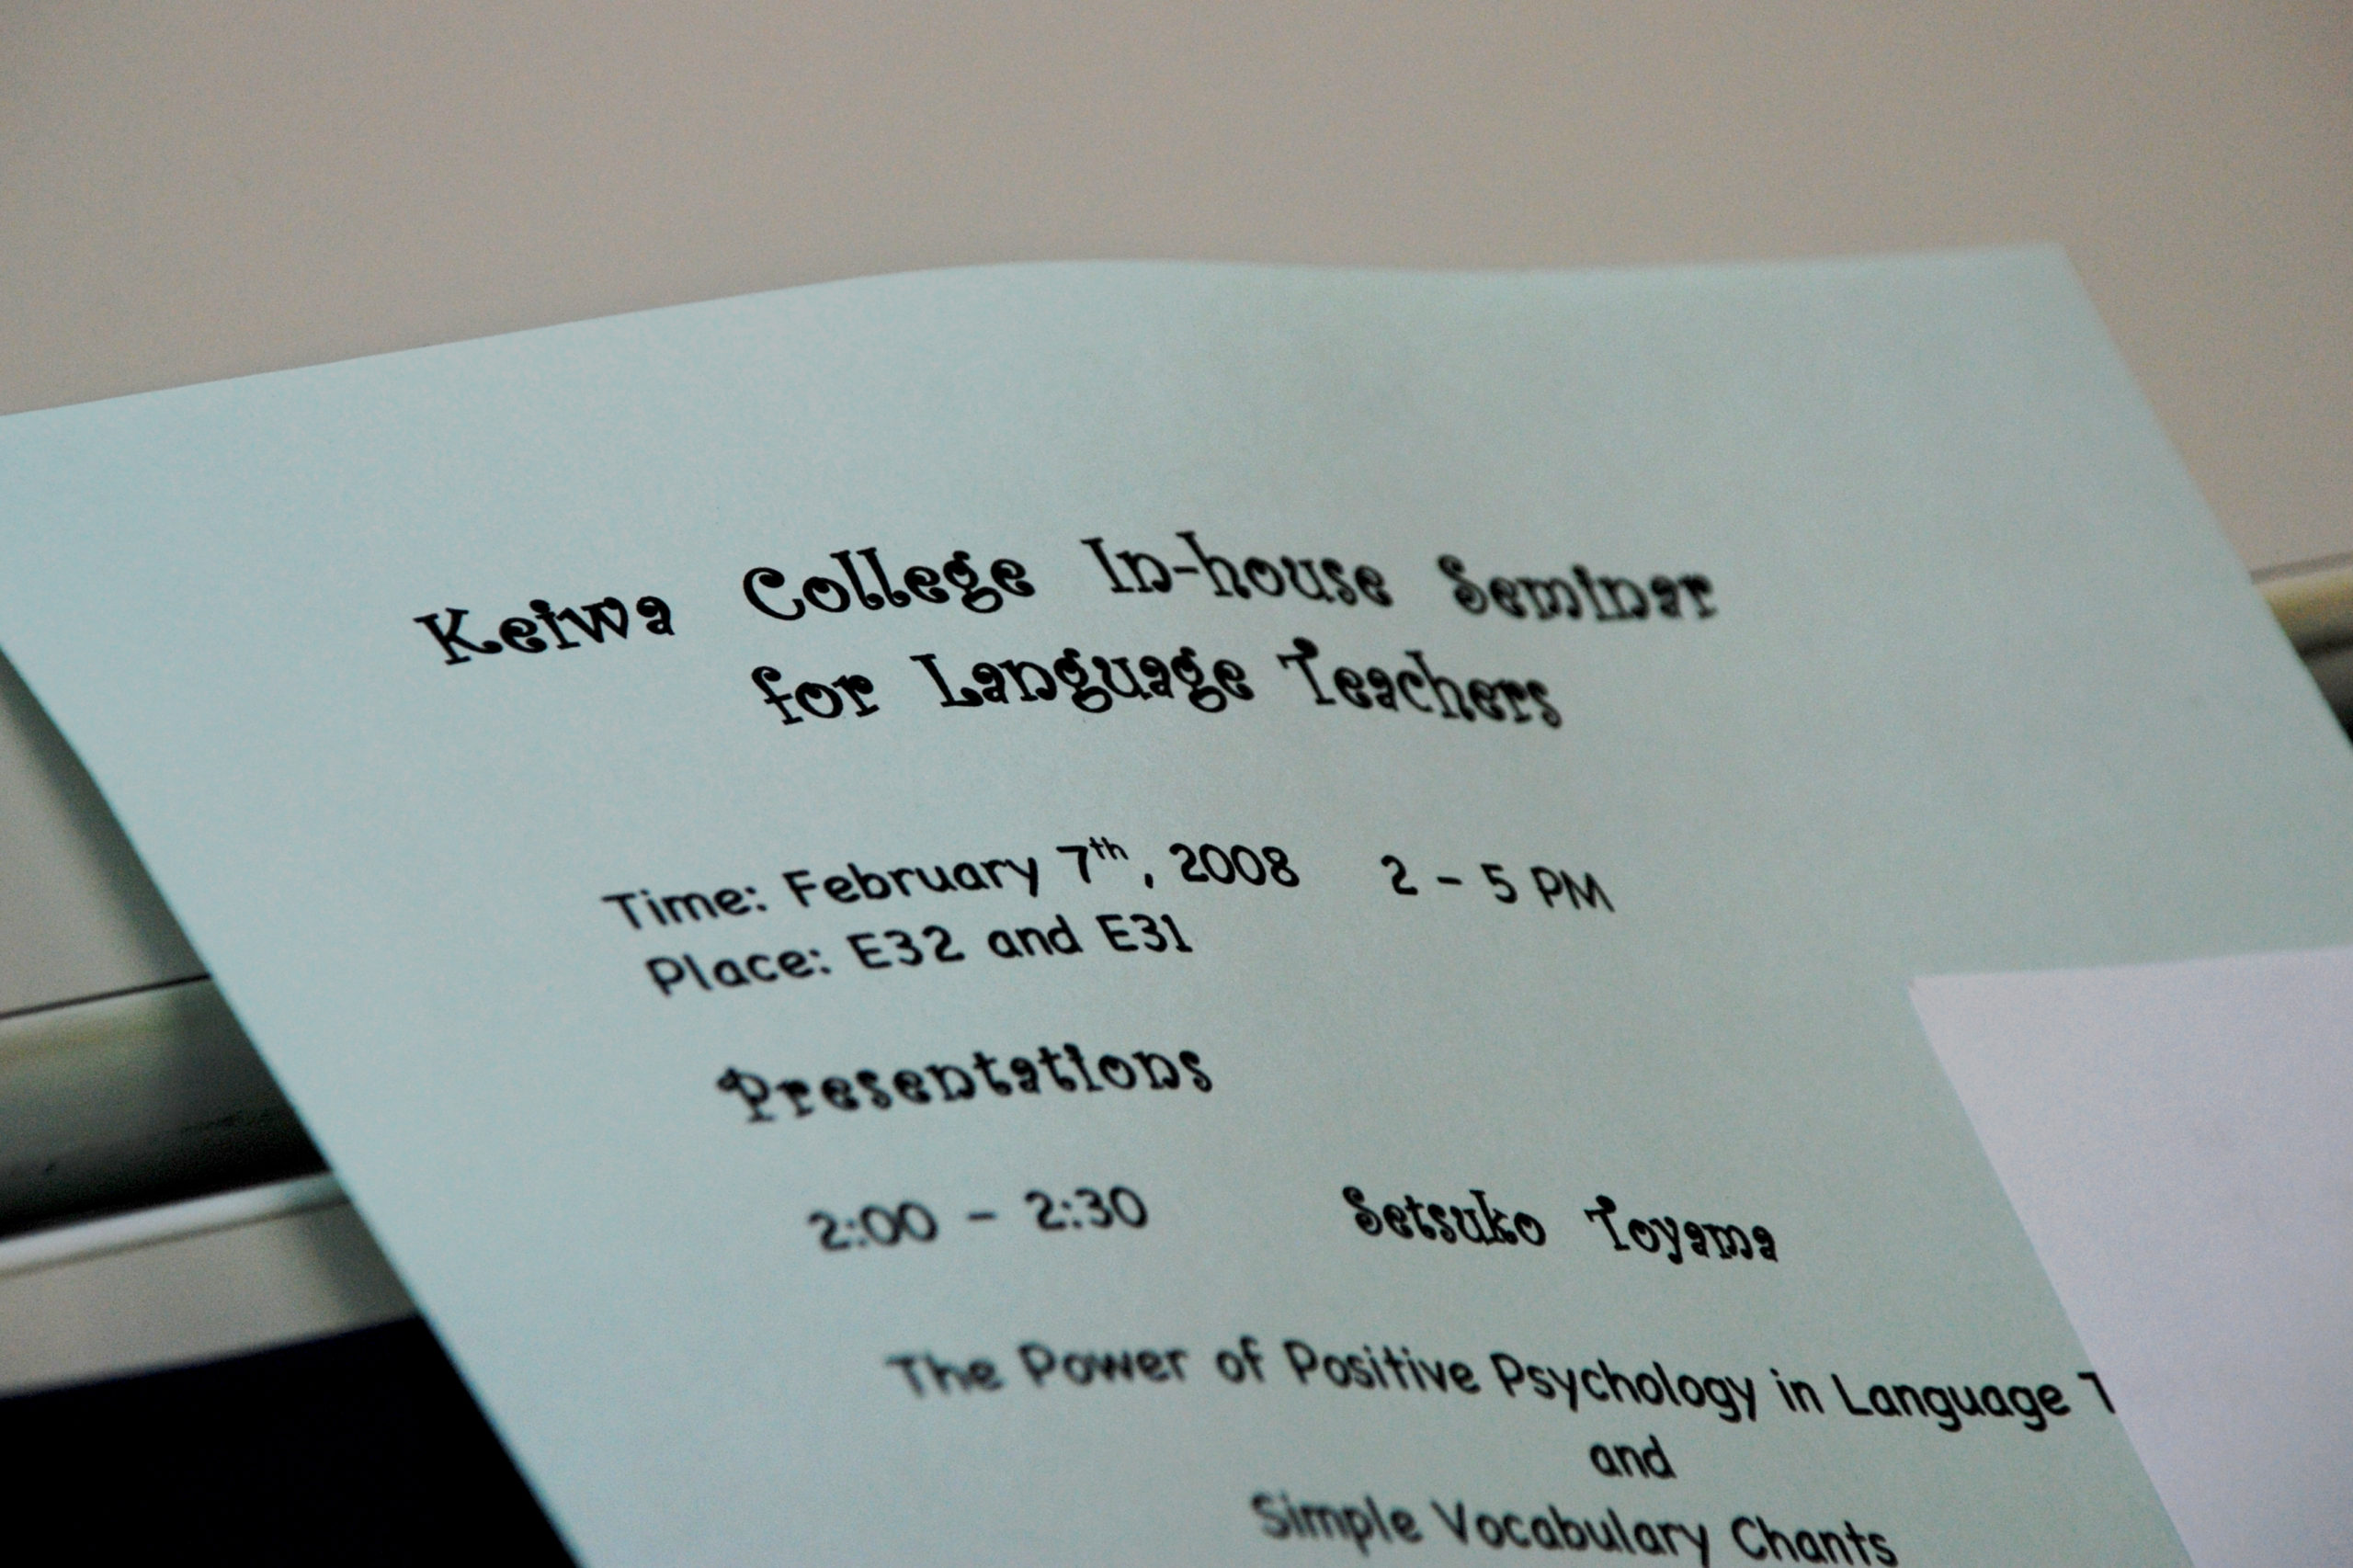 Keiwa College In-house Seminar
for Language Teachers
Time: February 7th, 2008 2 - 5 PM
Place: E32 and E31
Presentations
2:00 - 2:30 Setsuko Toyama
The Power of Positive Psychology in Language
and
Simple Vocabulary Chants